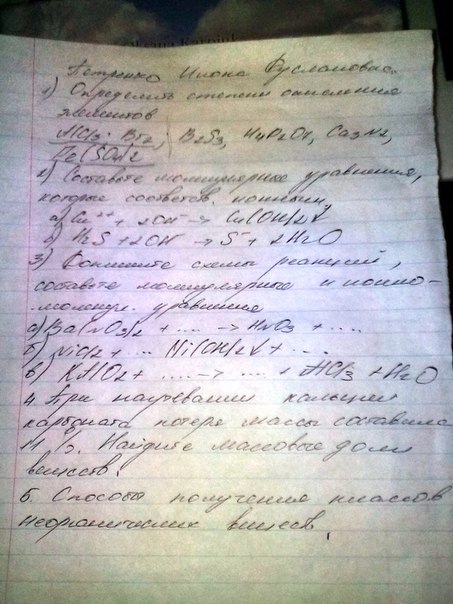 Петренко Илона Руслановна
1) Определить степени окисления
элементов
AlCl3; Br2; B2S3, H4P2O7, Ca3N2,
Fe(SO4)2
2) Составьте молекулярные уравнения,
которые соответств. ионным,
а) Cu2+ + 2OH- → Cu(OH)2↓
б) H2S + 2OH- → S- + 2H2O
3) Допишите схемы реакций,
составьте молекулярные и ионно-
молекул. уравнения
а) Ba(NO3)2 + .... → HNO3 + ....
б) NiCl2 + ... Ni(OH)2↓ + ....
в) KAlO2 + ..... → .... + AlCl3 + H2O
4. При нагревании кальций
карбоната потеря массы составила
Найдите массовые доли
веществ.
5. Способы получения классов
неорганических веществ.